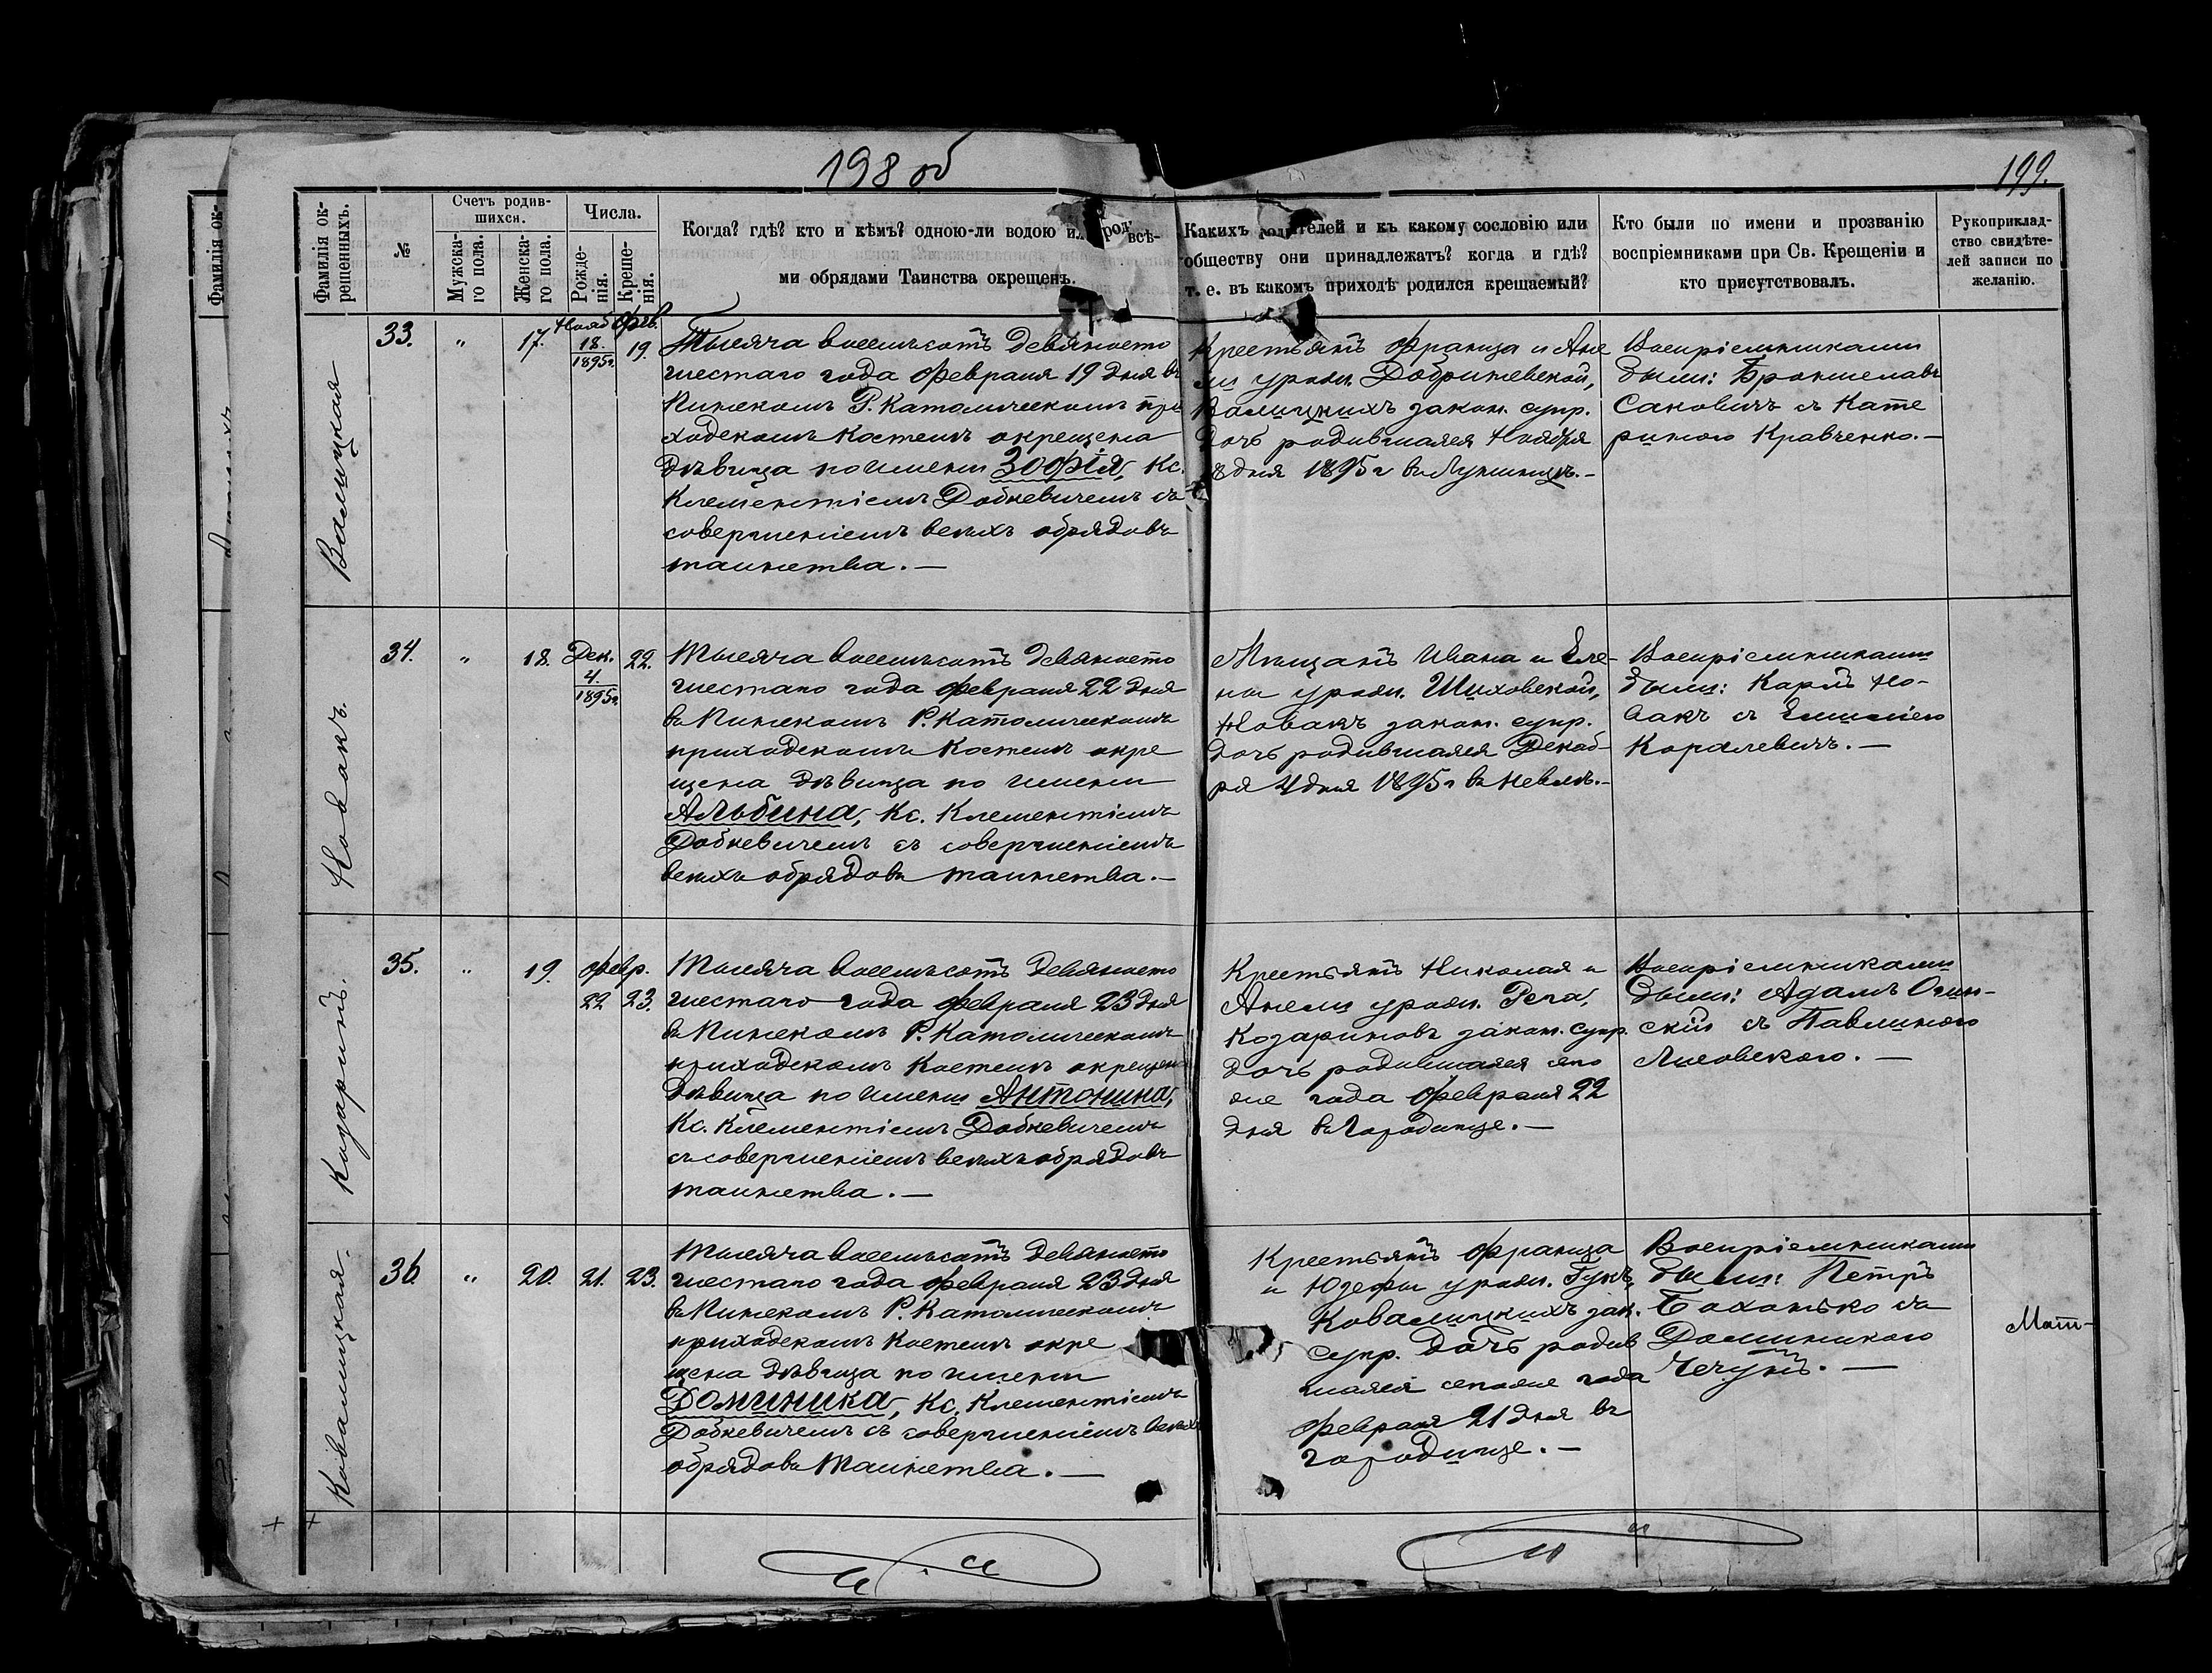 198 об
199.
Фамилія ок-
Фамилія ок-
рещенныхъ.
№
Счетъ родив-
шихся.
Мужска-
го пола.
Женска-
го пола.
Числа.
Рожде-
нія.
Креще-
нія.
Когда? гдѣ? кто и кѣмъ? одною-ли водою и всѣ-
ми обрядами Таинства окрещенъ.
Какихъ родителей и къ какому сословію или
обществу они принадлежатъ? когда и гдѣ?
т. е. въ какомъ приходѣ родился крещаемый?
Кто были по имени и прозванію
воспріемниками при Св. Крещеніи и
кто присутствовалъ.
Рукоприклад-
ство свидѣте-
лей записи по
желанію.
Валицкая
33.
"
17.
Нояб
18.
1895г.
Фев.
19.
Тысяча восемьсотъ девяносто
шестаго года Февраля 19 дня въ
Пинскомъ Р. Католическомъ при
ходскомъ костелѣ окрещена
дѣвица по имени Зофія, Кс.
Клементіемъ Добкевичемъ съ
совершеніемъ всѣхъ обрядовъ
таинства. —
Крестьянъ Франца и Ане
ли урожд. Добришевской,
Валицкихъ закон. супр.
дочь родившаяся Ноября
8 дня 1895 г въ Лунинцѣ. –
Воспріемниками
были: Брониславъ
Саковичъ съ Кате
риною Кравченко. –
Новакъ.
34.
"
18.
Дек.
4.
1895г.
22.
Тысяча восемьсотъ девяносто
шестаго года Февраля 22 дня
въ Пинскомъ Р. Католическомъ
приходскомъ костелѣ окре
щена дѣвица по имени
Альбина, Кс. Клементіемъ
Добкевичемъ съ совершеніемъ
всѣхъ обрядовъ таинства. –
Мѣщанъ Ивана и Еле-
ны урожд. Шиховской,
Новакъ закон. супр.
дочь родившаяся Декаб-
ря 4 дня 1895 г въ Невелѣ. –
Воспріемниками
были: Карлъ Но-
вакъ съ Емиліею
Королевичъ. –
Козаринъ.
35.
"
19.
Февр.
22
23.
Тысяча восемьсотъ девяносто
шестаго года Февраля 23 дня
въ Пинскомъ Р. Католическомъ
приходскомъ костелѣ окрещена
дѣвица по имени Антонина,
Кс. Клементіемъ Добкевичемъ
съ совершеніемъ всѣхъ обрядовъ
таинства. —
Крестьянъ Николая и
Анели урожд.
Козариновъ закон. супр.
дочь родившаяся сего
же года Февраля 22
дня въ Городище. –
Воспріемниками
были: Адамъ Огин-
скій съ Павлиною
Лисовскою. –
Ковалицкая.
36.
"
20.
21.
23.
Тысяча восемьсотъ девяносто
шестаго года Февраля 23 дня
въ Пинскомъ Р. Католическомъ
приходскомъ костелѣ окре
щена дѣвица по имени
Доминика, Кс. Клементіемъ
Добкевичемъ съ совершеніемъ всѣхъ
обрядовъ Таинства. —
Крестьянъ Франца
и Юзефы урожд. Гукъ,
Ковалицкихъ зак.
супр. дочь родив
шаяся сего же года
Февраля 21 дня въ
Городище. –
Воспріемниками
были: Петръ
Боханько съ
Доминикою
–